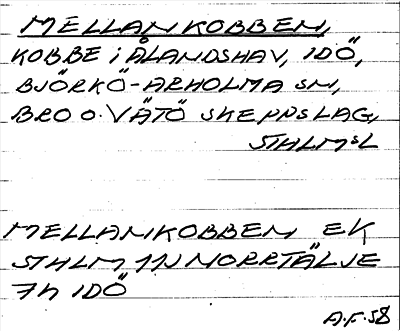 MELLANKOBBEN,
KOBBE i ÅLANDSHAV, IDÖ,
BJÖRKÖ-ARHOLMA SN,
BRO O. VÄTÖ SKEPPSLAG,
STHLMSL
MELLANKOBBEN EK
STHLM 11N NORRTÄLJE
7h IDÖ
A.F. 58